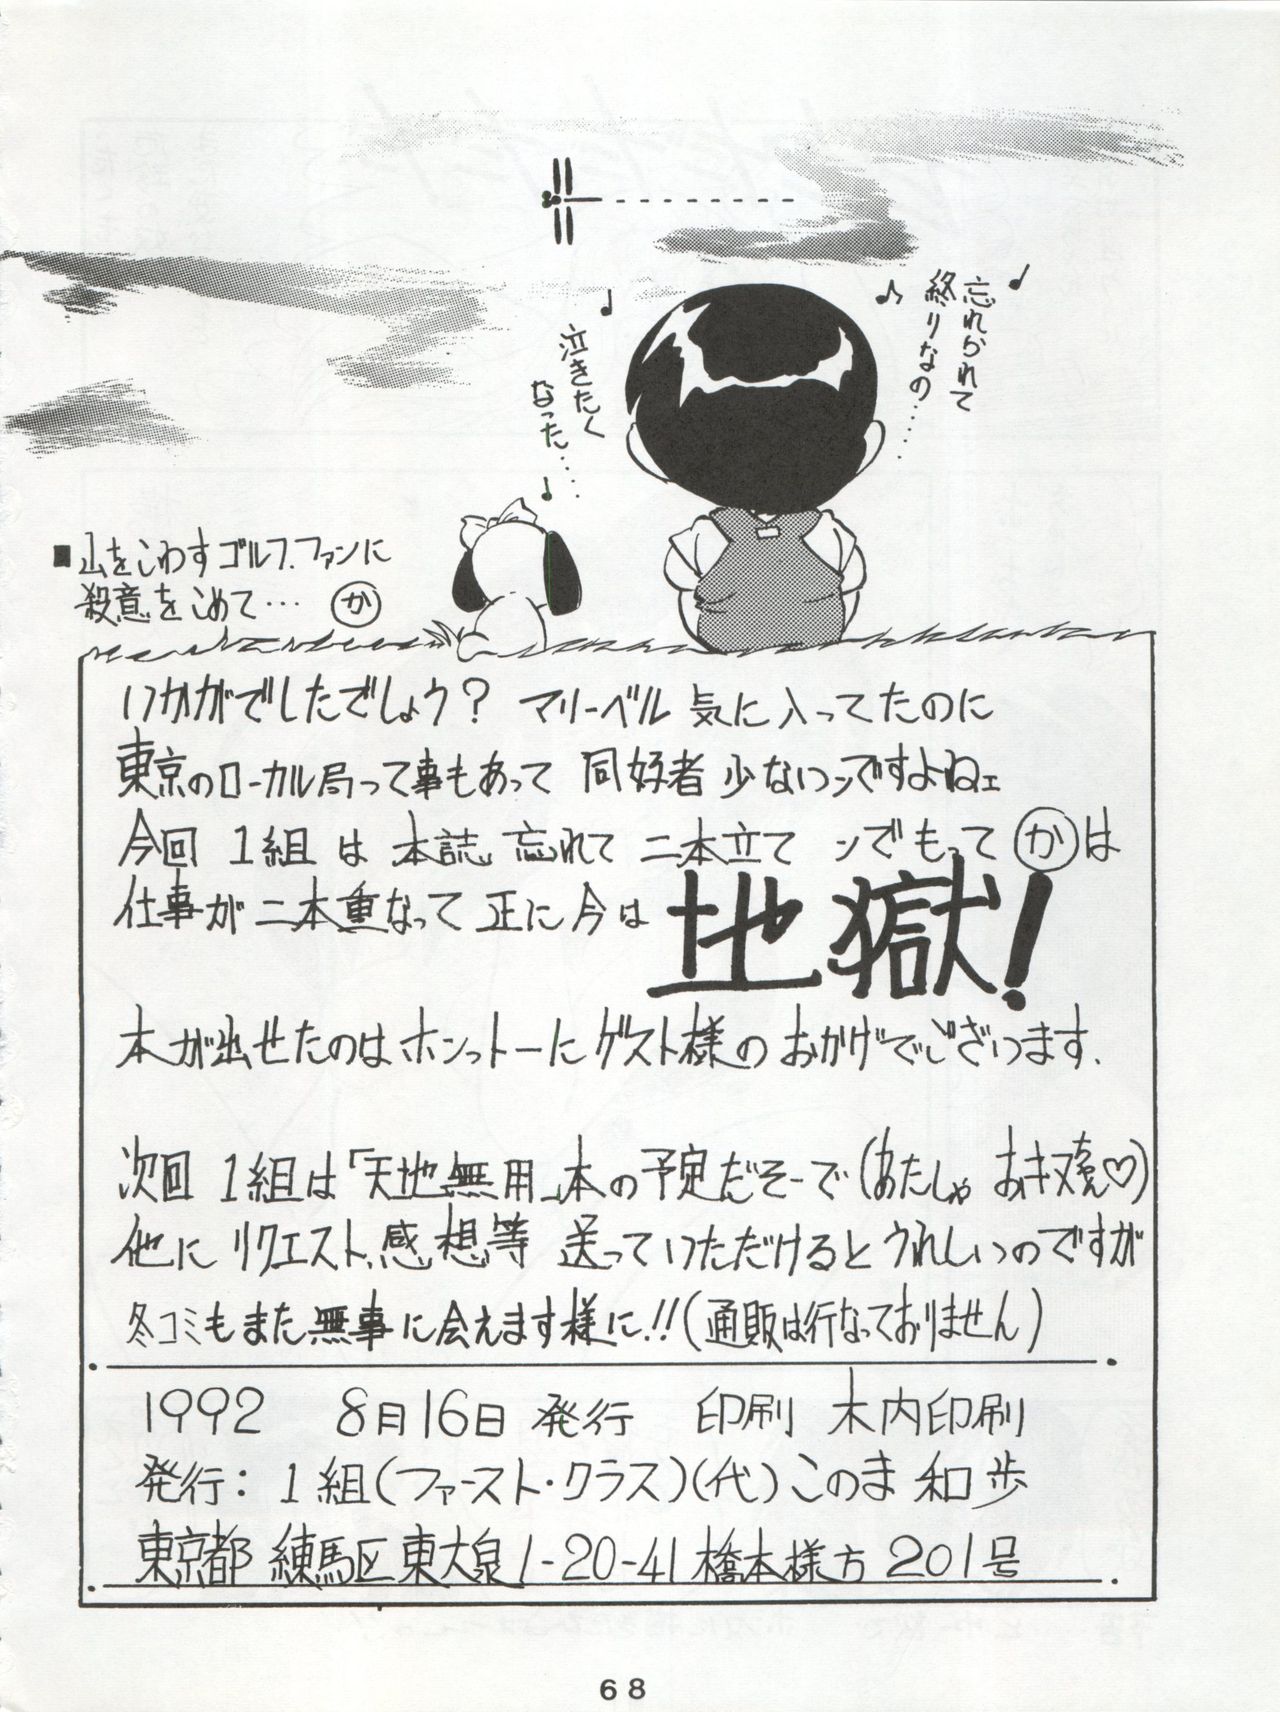 忘れられて
終りなの…‥
泣きたく
なった……
■山をこわすゴルフ.ファンに
殺意をこめて… か
いかがでしたでしょう? マリーベル 気に入ってたのに
東京のローカル局って事もあって 同好者 少ないンですよねェ
今回 1組 は 本誌 忘れて 二本立て ンでもって かは
仕事が 二本重なって 正に 今は 地獄!
本が出せたのはホンっトーにゲスト様の おかげでございます.
次回 1組は「天地無用」本の予定だそーで(あたしゃ おキヌちゃん♡)
他に リクエスト、感想等 送っていただけると うれしいのですが
冬コミもまた無事に会えます様に!!(通販は行なっておりません)
1992 8月16日 発行 印刷 木内印刷
発行: 1組(ファースト・クラス)(代)このま 和歩
東京都 練馬区 東大泉1-20-41 橋本様方 201号
68